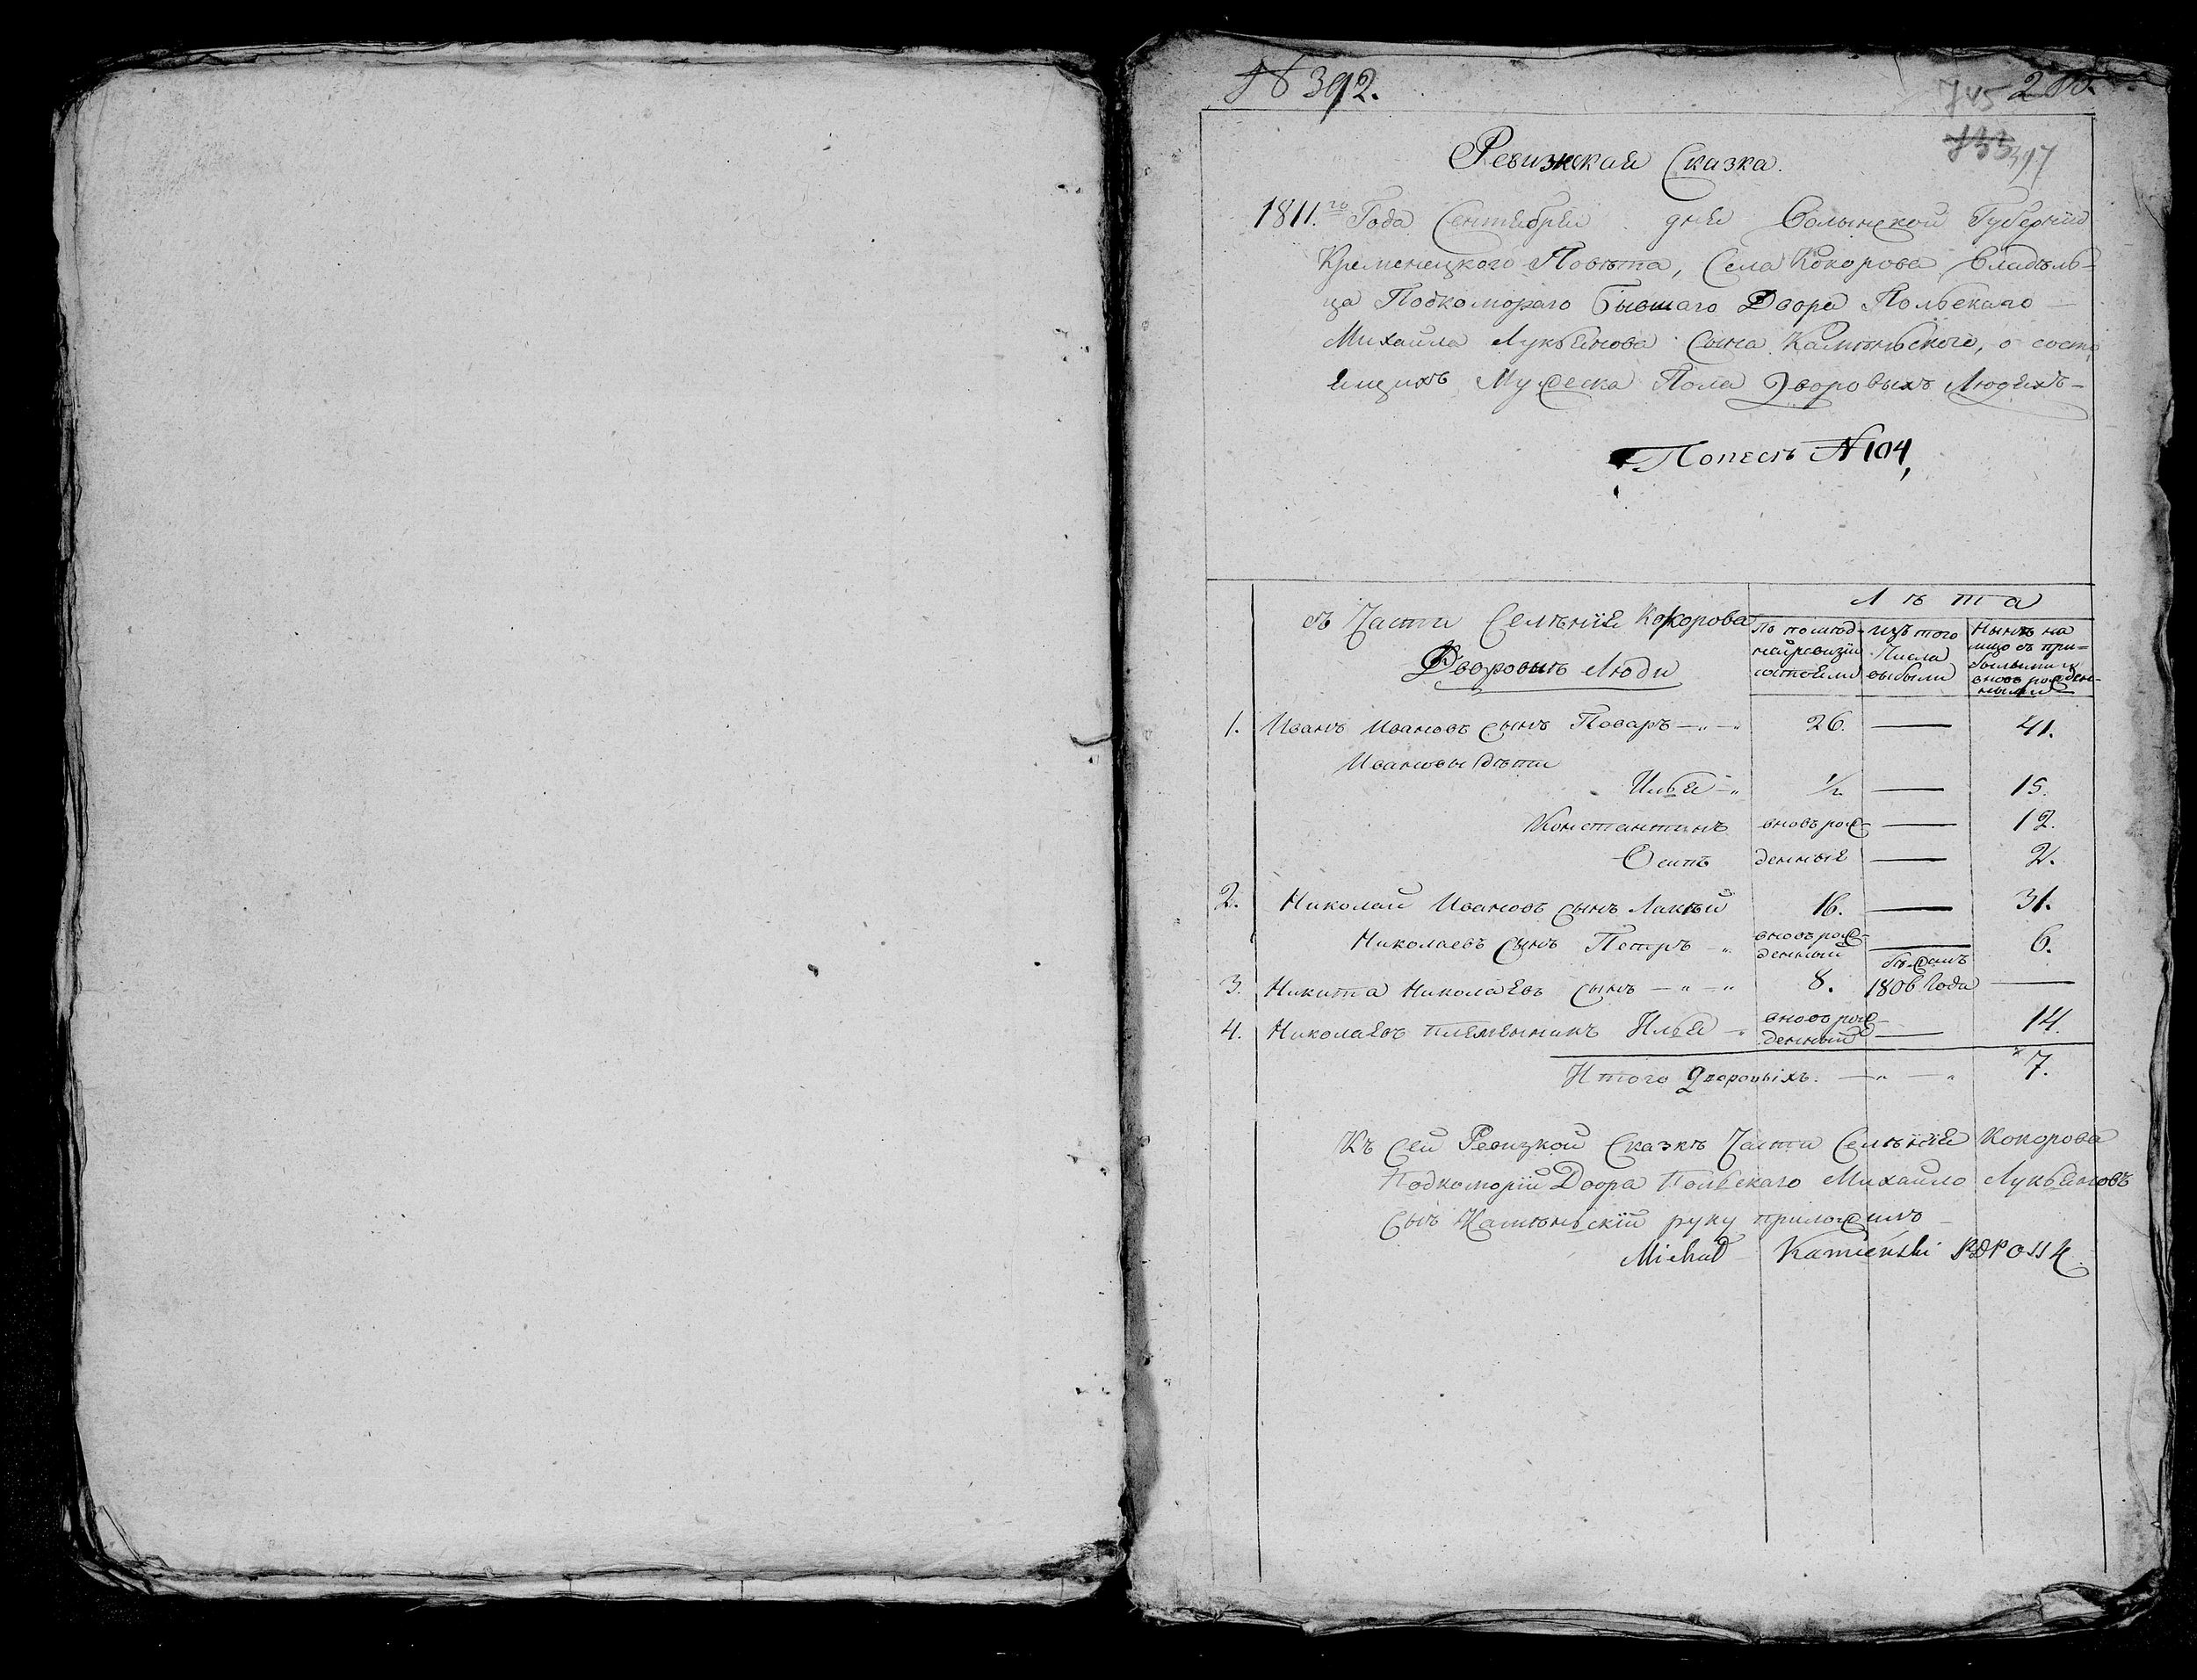 N 392.
745
733 397
Ревизская Сказка.
1811.го Года Сентебреѧ дня Волынской Губерніи
Кременецкого Повѣта, Села Кокорова Владѣль=
ца Подкомораго бывшаго Двора Польскаго
Михаила Лукьянова Сына Камѣньского, о состо
ящихъ Мужеска Пола Дворовыхъ Людяхъ-
N 104,
Лѣта
въ Части Селѣнія Кокорова
Дворовыѣ Люди
По послѣд-
ней ревизіи
состояли
Изъ того
Числа
выбыли
Нынѣ на
лицо съ при=
былыми и
вновь рожден-
ными
1. Иванъ Ивановъ сынъ Поваръ —„—„ 26. — 41.
Ивановы дѣти
Илья —„ 1/2 — 15.
Константинъ вновь рож- — 12.
Осипъ денныя — 2.
2. Николай Ивановъ сынъ Лакѣй 16. — 31.
Николаевъ сынъ Петръ —„ вновь рож-
денный — 6.
3. Никита Николаевъ сынъ —„—„ 8. Бѣжалъ
1806 Года —
4. Николаевъ племенникъ Илья —„ вновь рож-
денный — 14.
Итого Дворовыхъ. —„ —„ 7.
Къ сей Ревизкой Сказкѣ Части Селѣнія Кокорова
Подкоморій Двора Польскаго Михайло Лукьяновъ
сынъ Камѣньскій руку приложилъ
Michał Kamieński